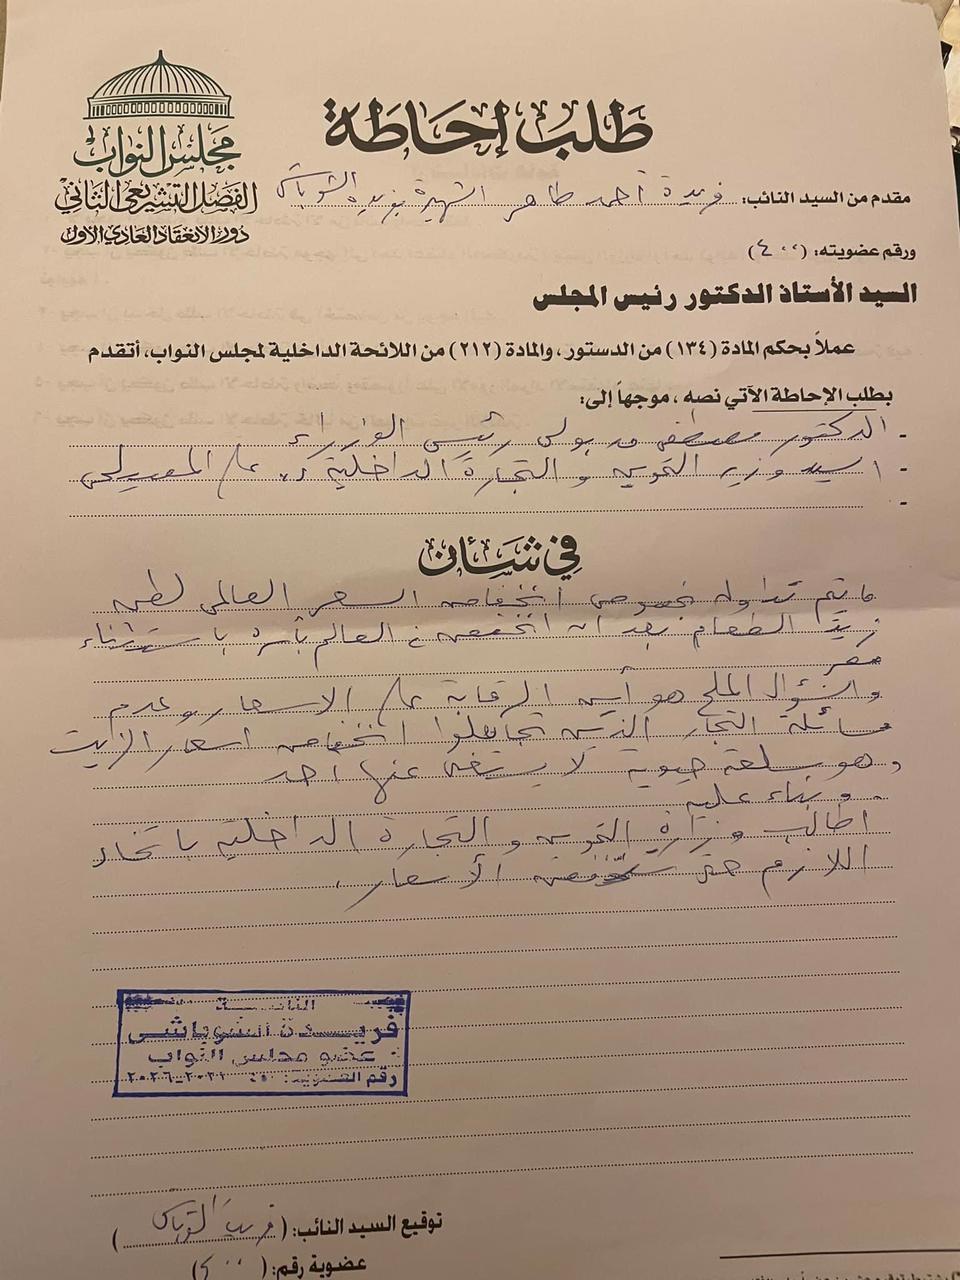 مجلس النواب
الفصل التشريعى الثانى
دور الانعقاد العادى الأول
طلب إحاطة
مقدم من السيد النائب: فريدة أحمد طاهر الشهيرة بفريدة الشوباشى
ورقم عضويته: (٤٠٠)
السيد الأستاذ الدكتور رئيس المجلس
عملاً بحكم المادة (١٣٤) من الدستور، والمادة (٢١٢) من اللائحة الداخلية لمجلس النواب، أتقدم
بطلب الإحاطة الآتي نصه، موجهاً إلى:
- الدكتور مصطفى مدبولى رئيس الوزراء
- السيد وزير التموين والتجارة الداخلية د. على المصيلحى
-
في شأن
ما يتم تداوله بخصوص انخفاض السعر العالمى لطن
زيت الطعام بعد أن انخفض فى العالم بأسره باستثناء
مصر
والسؤال الملح هو أين الرقابة على الاسعار وعدم
مسائلة التجار الذين تجاهلوا انخفاض اسعار الزيت
وهو سلعة حيوية لا يستغنى عنها أحد
وبناء عليه
اطالب وزارة التموين والتجارة الداخلية باتخاذ
اللازم حتى تنخفض الأسعار.
النائبـــة
فريـــدة الشوباشى
عضو مجلس النواب
رقم العضوية: ٢٠٢١-٢٠٢٦
توقيع السيد النائب: (فريدة الشوباشى)
عضوية رقم: (٤٠٠)